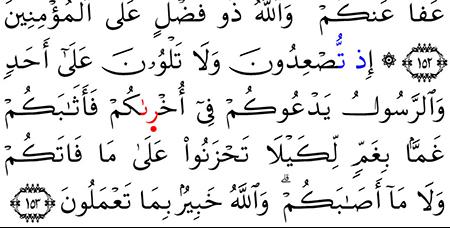 عَفَا عَنكُمْ وَٱللَّهُ ذُو فَضْلٍ عَلَى ٱلْمُؤْمِنِينَ
﴿١٥٢﴾ ۞ إِذ تُّصْعِدُونَ وَلَا تَلْوُۥنَ عَلَىٰٓ أَحَدٍ
وَٱلرَّسُولُ يَدْعُوكُمْ فِىٓ أُخْرَىٰكُمْ فَأَثَٰبَكُمْ
غَمًّۢا بِغَمٍّ لِّكَيْلَا تَحْزَنُوا۟ عَلَىٰ مَا فَاتَكُمْ
وَلَا مَآ أَصَٰبَكُمْ ۗ وَٱللَّهُ خَبِيرٌۢ بِمَا تَعْمَلُونَ ﴿١٥٣﴾